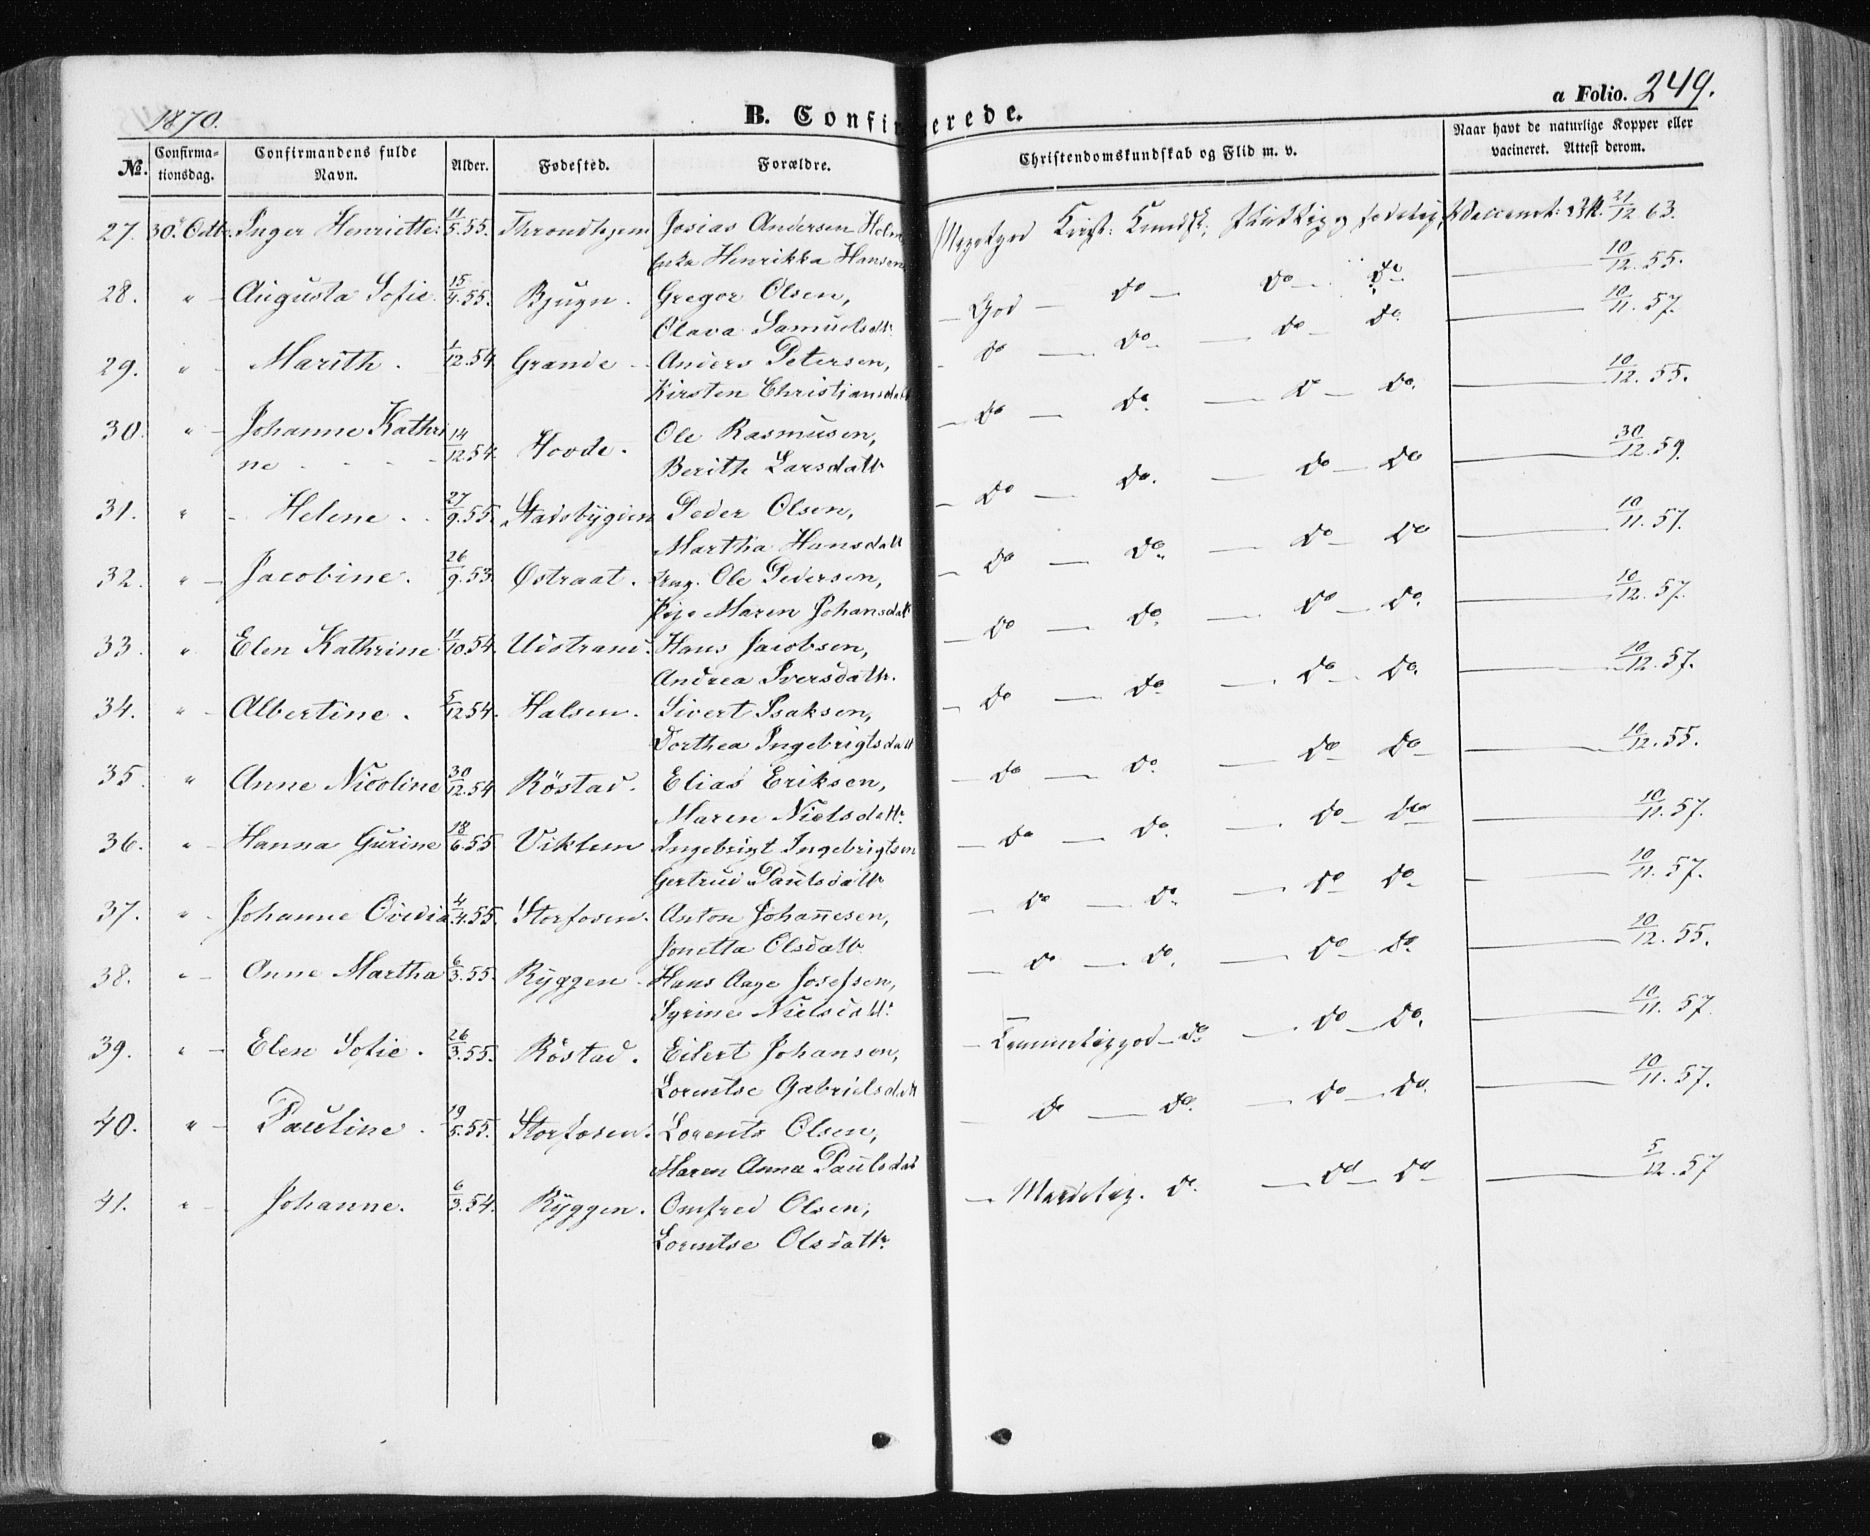 1870.
B. Confirmerede.
a Folio. 249.
No. Confirmationsdag. Confirmandens fulde Navn. Alder. Fødested. Forældre. Christendomskundskab og Flid m. v. Naar havt de naturlige Kopper eller vacineret. Attest derom.
27. 30. Octb. Inger Henriette 11/5.55. Throndhjem Josias Andersen Holm Megetgod Krist: Kundsk. 21/12 63.
Henrikka Hansen
28. " Augusta Sofie 15/4.55. Bjugn. Gregor Olsen, God do do do 10/12.55.
Olava Samuelsdtr
29. " Marith. 1/12.54 Grande Anders Petersen, do do. do do. 10/11.57.
Kirsten Christiansdatt
30. " Johanne Kathri 14/12 54. Hovde. Ole Rasmusen, do do. do do. 10/12.55.
ne Berith Larsdatt
31. " Helene. 27/9.55. Stadsbygden Peder Olsen, do do. do do 30/12.59.
Martha Hansdatt
32. " Jacobine. 26/9.53. Østraat. Ung. Ole Pedersen, do do. do do 10/11.57.
Pige Maren Johansdatt
33. " Elen Kathrine 11/10.54. Udstrand. Hans Jacobsen, do do. do do. 10/12.57.
Andrea Iversdattr.
34. " Albertine. 5/12 54. Halsen. Sivert Isaksen, do do do do. 10/12.57.
Dorthea Ingebrigtsdatt
35. " Anne Nicoline 30/12.54 Röstad. Elias Eriksen, do do. do do 10/12.55.
Maren Nielsdattr.
36. " Hanna Gurine 18/6.55 Viklem Ingebrigt Ingebrigtsen do do. do do 10/11.57.
Gertrud Paulsdatt
37. " Johanne Ovidia 4/4.55. Storfosen. Anton Johannesen, do do. do do. 10/11.57.
Jonetta Olsdatt
38. " Anne Martha 6/3.55. Ryggen Hans Aage Josefsen, do do. do do. 10/12.55.
Syrine Nielsdatt
39. " Elen Sofie. 26/3.55. Röstad. Eilert Johansen, Temmeliggod do. do do. 10/11.57.
Lorentse Gabrielsdatt
40. " Pauline. 19/5.55. Storfosen. Lorents Olsen, do do. do do. 10/11.57.
Maren Anna Paulsdat
41. " Johanne. 6/3.54. Ryggen. Omfred Olsen, Maadelig. do. do do 5/12.57
Lorentse Olsdattr.